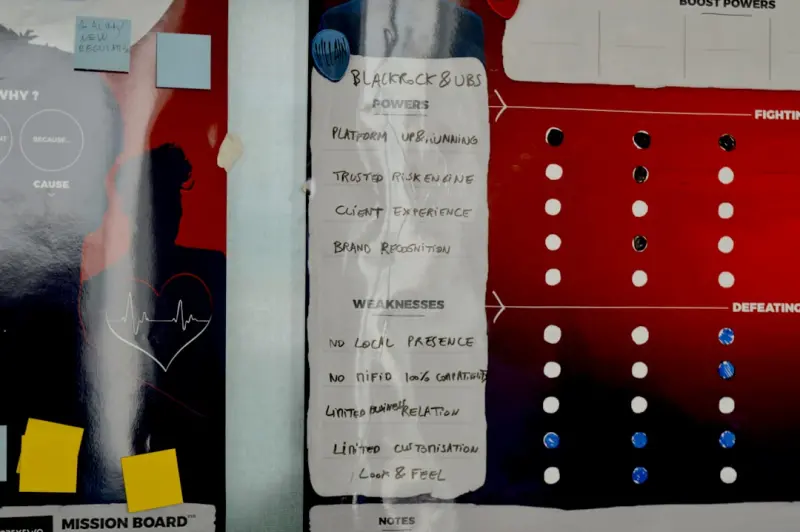 NEW
WHY ?
BECAUSE...
CAUSE
MISSION BOARD™
VILLAIN
BLACKROCK & UBS
POWERS
PLATFORM UP & RUNNING
TRUSTED RISK ENGINE
CLIENT EXPERIENCE
BRAND RECOGNITION
WEAKNESSES
NO LOCAL PRESENCE
NO MIFID 100%
LIMITED BUSINESS RELATION
LIMITED CUSTOMISATION
LOOK & FEEL
NOTES
BOOST POWERS
FIGHTIN
DEFEATING